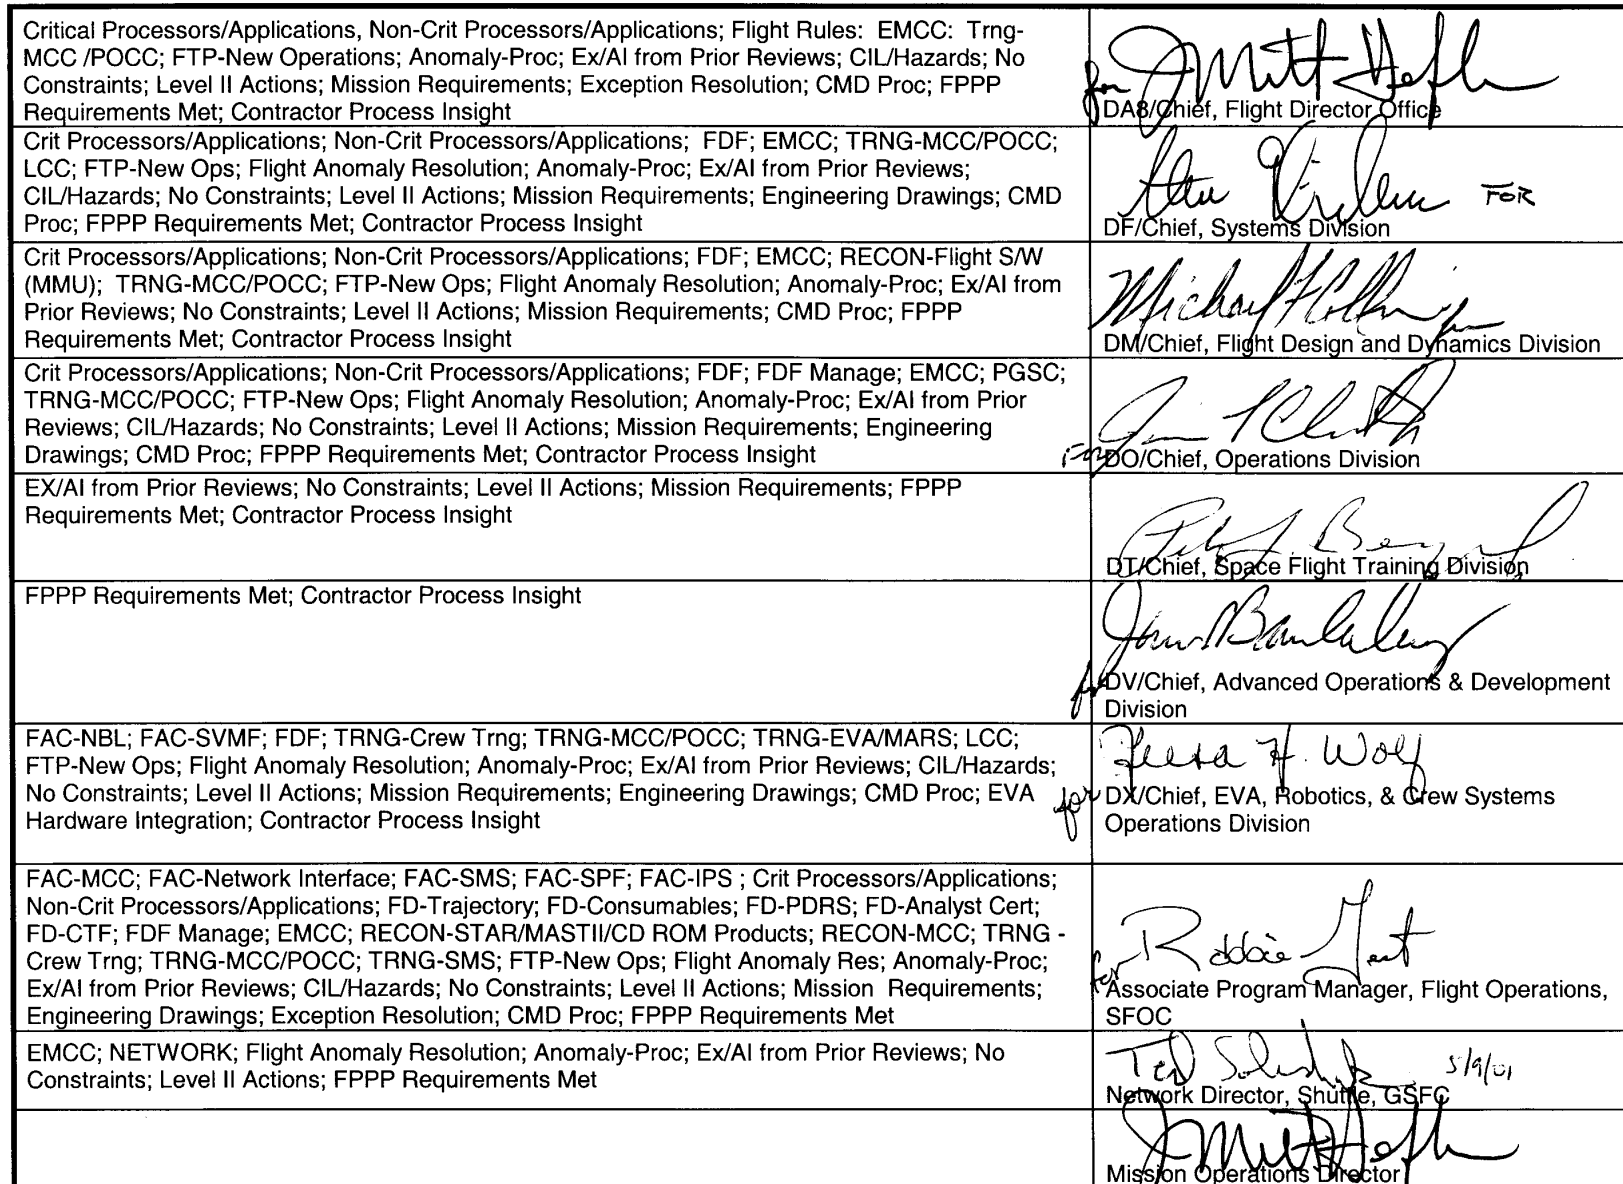 Critical Processors/Applications, Non-Crit Processors/Applications; Flight Rules: EMCC: Trng-
MCC /POCC; FTP-New Operations; Anomaly-Proc; Ex/AI from Prior Reviews; CIL/Hazards; No
Constraints; Level II Actions; Mission Requirements; Exception Resolution; CMD Proc; FPPP
Requirements Met; Contractor Process Insight
for J Milt Heflin
DA8/Chief, Flight Director Office
Crit Processors/Applications; Non-Crit Processors/Applications; FDF; EMCC; TRNG-MCC/POCC;
LCC; FTP-New Ops; Flight Anomaly Resolution; Anomaly-Proc; Ex/AI from Prior Reviews;
CIL/Hazards; No Constraints; Level II Actions; Mission Requirements; Engineering Drawings; CMD
Proc; FPPP Requirements Met; Contractor Process Insight
FOR
DF/Chief, Systems Division
Crit Processors/Applications; Non-Crit Processors/Applications; FDF; EMCC; RECON-Flight S/W
(MMU); TRNG-MCC/POCC; FTP-New Ops; Flight Anomaly Resolution; Anomaly-Proc; Ex/AI from
Prior Reviews; No Constraints; Level II Actions; Mission Requirements; CMD Proc; FPPP
Requirements Met; Contractor Process Insight
Michael F
DM/Chief, Flight Design and Dynamics Division
Crit Processors/Applications; Non-Crit Processors/Applications; FDF; FDF Manage; EMCC; PGSC;
TRNG-MCC/POCC; FTP-New Ops; Flight Anomaly Resolution; Anomaly-Proc; Ex/AI from Prior
Reviews; CIL/Hazards; No Constraints; Level II Actions; Mission Requirements; Engineering
Drawings; CMD Proc; FPPP Requirements Met; Contractor Process Insight
For
DO/Chief, Operations Division
EX/AI from Prior Reviews; No Constraints; Level II Actions; Mission Requirements; FPPP
Requirements Met; Contractor Process Insight
DT/Chief, Space Flight Training Division
FPPP Requirements Met; Contractor Process Insight
for
DV/Chief, Advanced Operations & Development
Division
FAC-NBL; FAC-SVMF; FDF; TRNG-Crew Trng; TRNG-MCC/POCC; TRNG-EVA/MARS; LCC;
FTP-New Ops; Flight Anomaly Resolution; Anomaly-Proc; Ex/AI from Prior Reviews; CIL/Hazards;
No Constraints; Level II Actions; Mission Requirements; Engineering Drawings; CMD Proc; EVA
Hardware Integration; Contractor Process Insight
H. Wolf
for DX/Chief, EVA, Robotics, & Crew Systems
Operations Division
FAC-MCC; FAC-Network Interface; FAC-SMS; FAC-SPF; FAC-IPS ; Crit Processors/Applications;
Non-Crit Processors/Applications; FD-Trajectory; FD-Consumables; FD-PDRS; FD-Analyst Cert;
FD-CTF; FDF Manage; EMCC; RECON-STAR/MASTII/CD ROM Products; RECON-MCC; TRNG -
Crew Trng; TRNG-MCC/POCC; TRNG-SMS; FTP-New Ops; Flight Anomaly Res; Anomaly-Proc;
Ex/AI from Prior Reviews; CIL/Hazards; No Constraints; Level II Actions; Mission Requirements;
Engineering Drawings; Exception Resolution; CMD Proc; FPPP Requirements Met
for Robbie
Associate Program Manager, Flight Operations,
SFOC
EMCC; NETWORK; Flight Anomaly Resolution; Anomaly-Proc; Ex/AI from Prior Reviews; No
Constraints; Level II Actions; FPPP Requirements Met
Ted 5/9/01
Network Director, Shuttle, GSFC
J Milt Heflin
Mission Operations Director